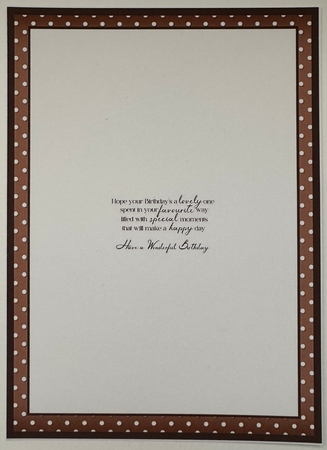 Hope your Birthday's a lovely one
spent in your favourite way
filled with special moments
that will make a happy day
Have a Wonderful Birthday